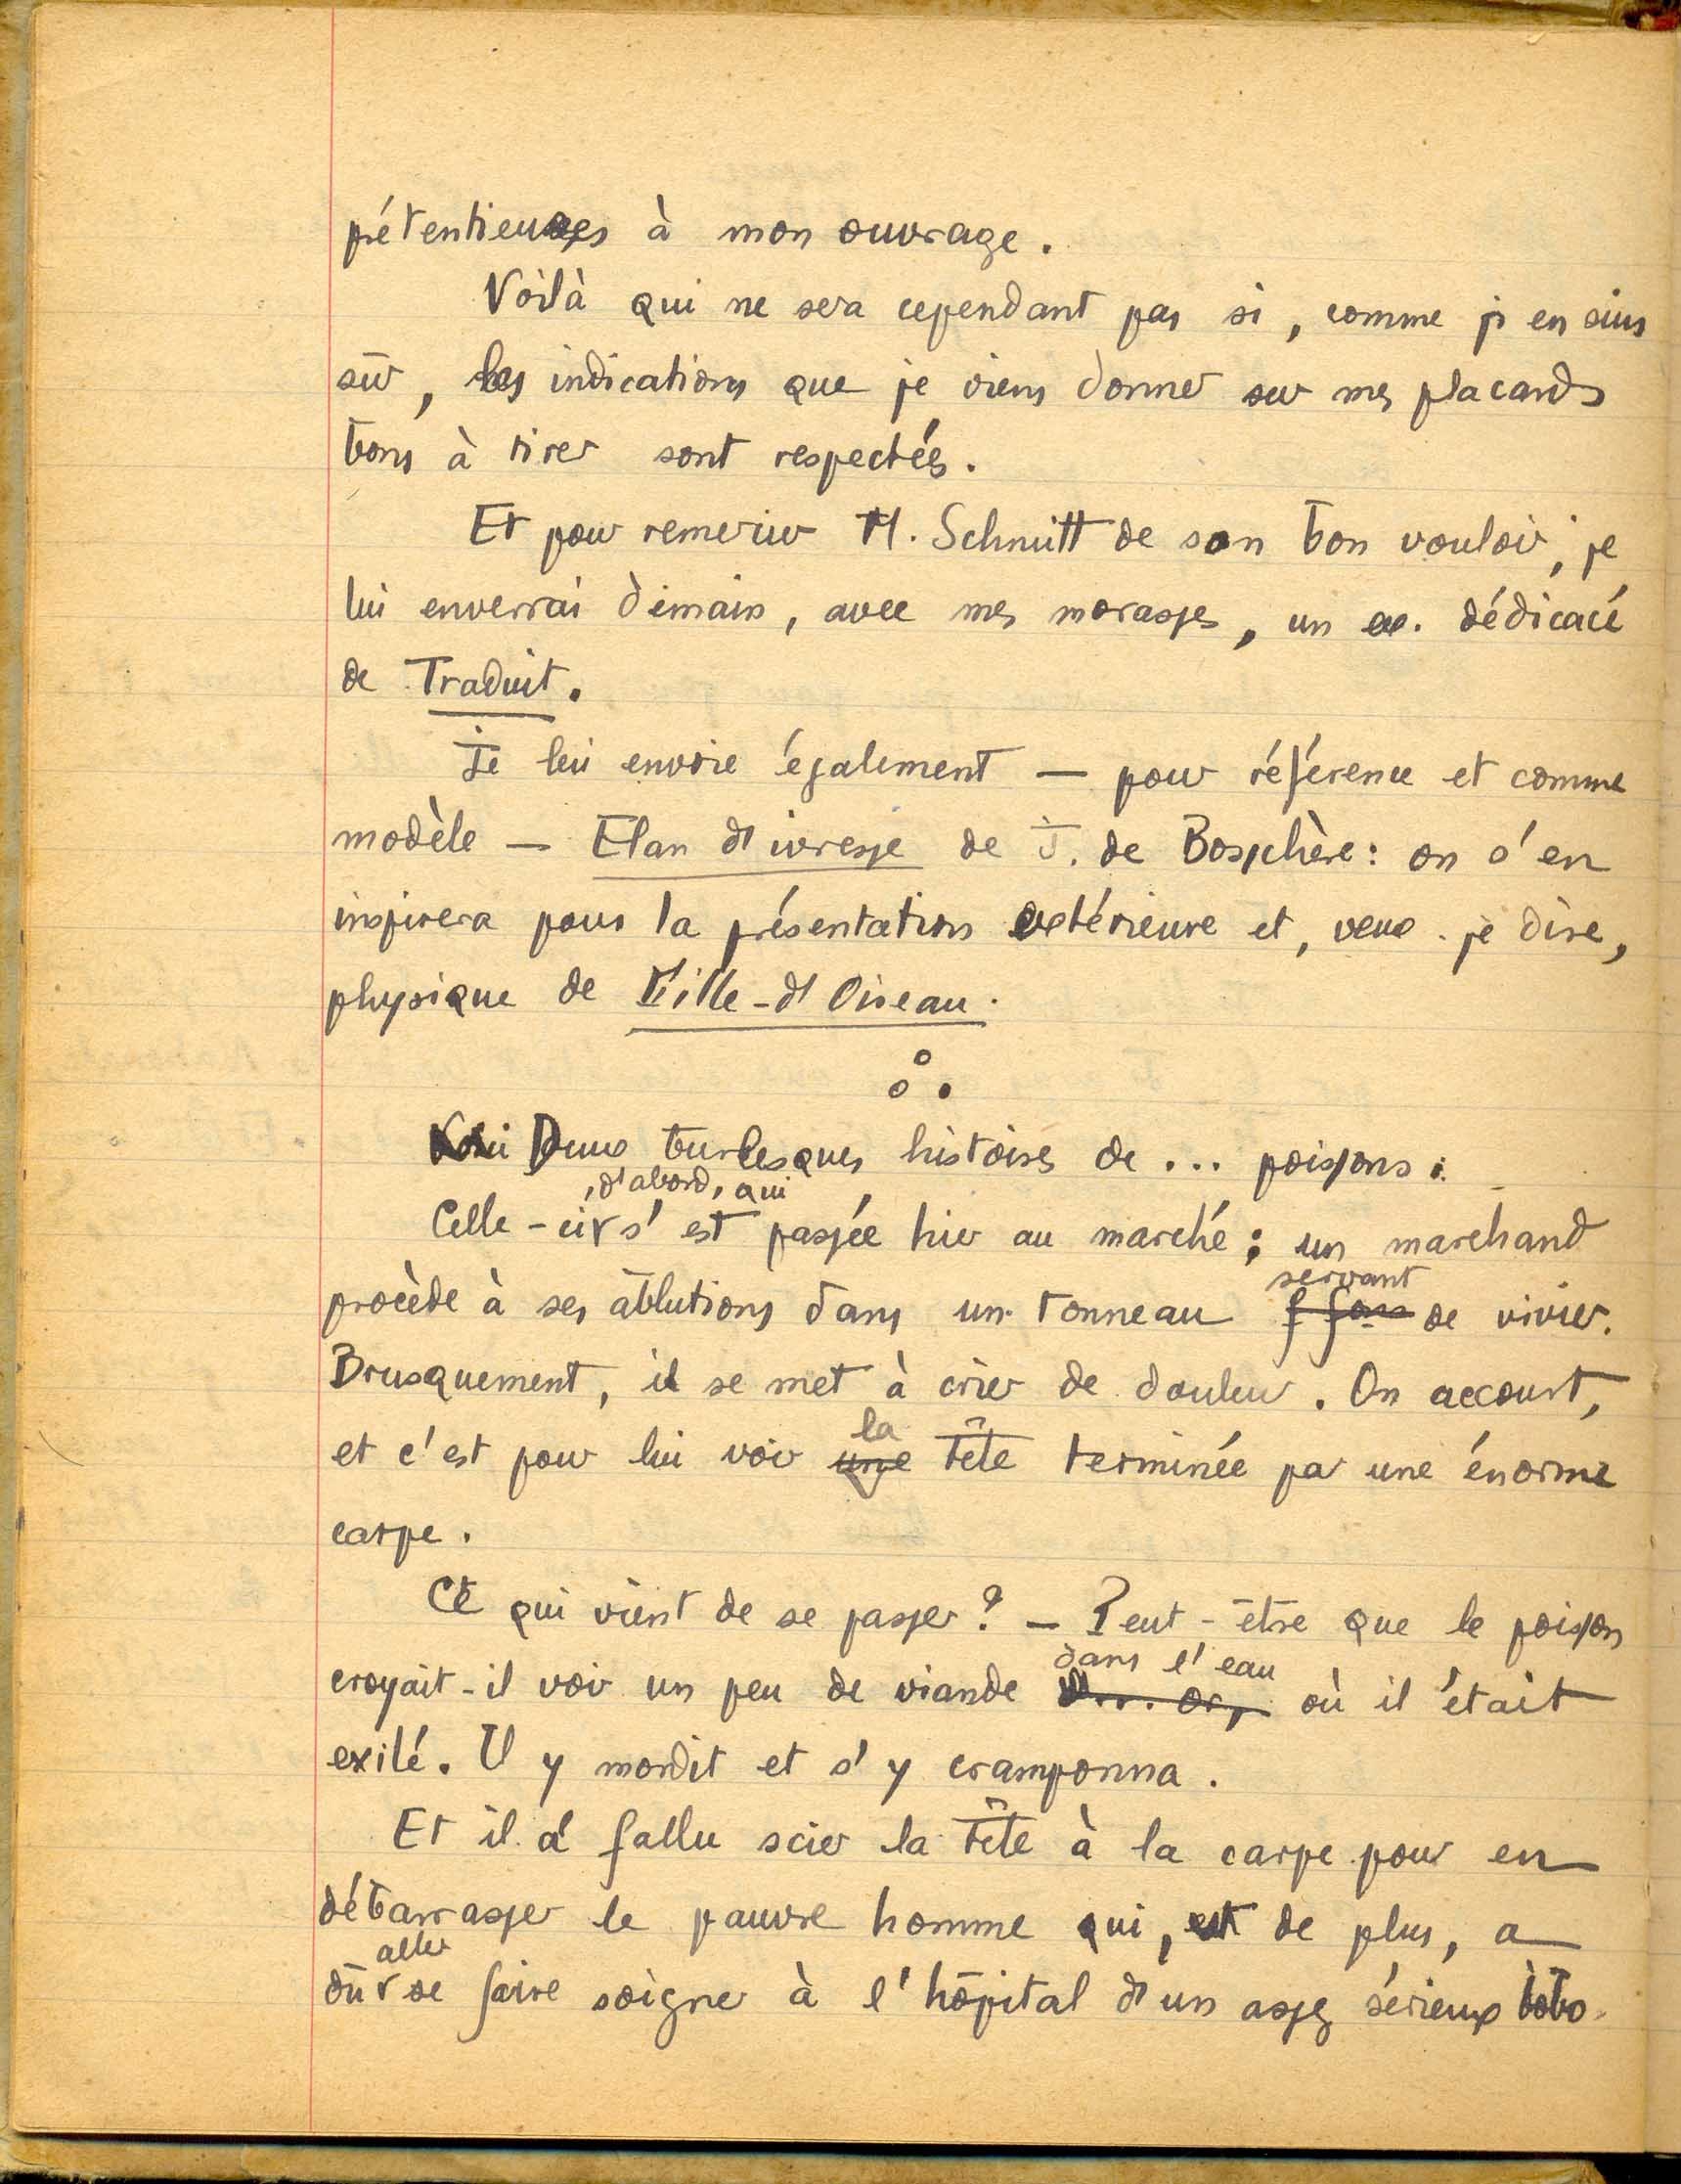 prétentieuses à mon ouvrage.
Voilà qui ne sera cependant pas si, comme j'en suis
sûr, les indications que je viens donner sur mes placards
bons à tirer sont respectées.
Et pour remercier M. Schmitt de son bon vouloir, je
lui enverrai demain, avec mes morasses, un ex. dédicacé
de Traduit.
Je lui envoie également — pour référence et comme
modèle — Elan d'ivresse de J. de Bosschère : on s'en
inspirera pour la présentation extérieure et, veux-je dire,
physique de Fille-d'Oiseau.
Voici Deux burlesques histoires de ... poissons :
, d'abord, qui
Celle-ci s'est passée hier au marché : un marchand
servant
procède à ses ablutions dans un tonneau de vivier.
Brusquement, il se met à crier de douleur. On accourt,
la
et c'est pour lui voir une tête terminée par une énorme
carpe.
Ce qui vient de se passer ? — Peut-être que le poisson
dans l'eau
croyait-il voir un peu de viande où il était
exilé. Il y mordit et s'y cramponna.
Et il a fallu scier la tête à la carpe pour en
débarrasser le pauvre homme qui, et de plus, a
aller
dû se faire soigner à l'hôpital d'un assez sérieux bobo.